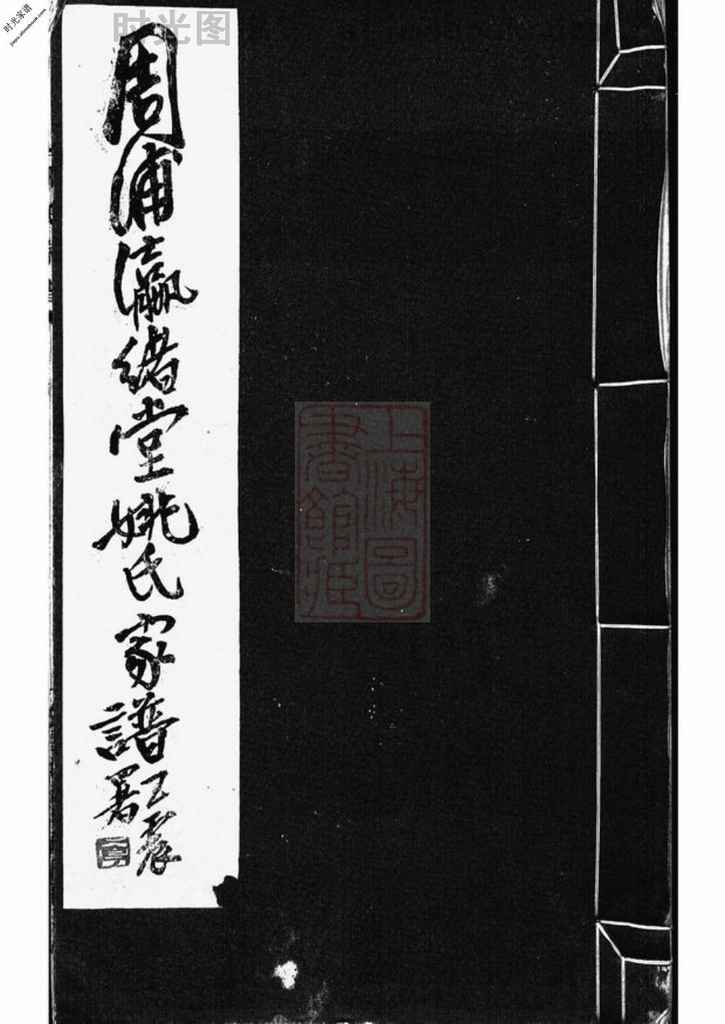 周浦瀛緒堂姚氏家譜
王震
署
上海圖
書館藏
时光图
时光家谱